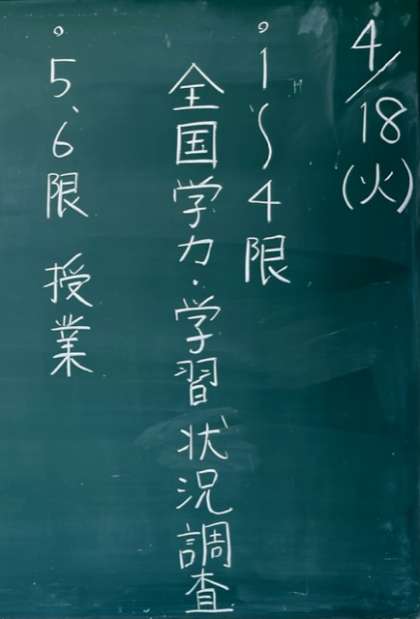 4/18(火)
・1〜4限
全国学力・学習状況調査
・5、6限 授業